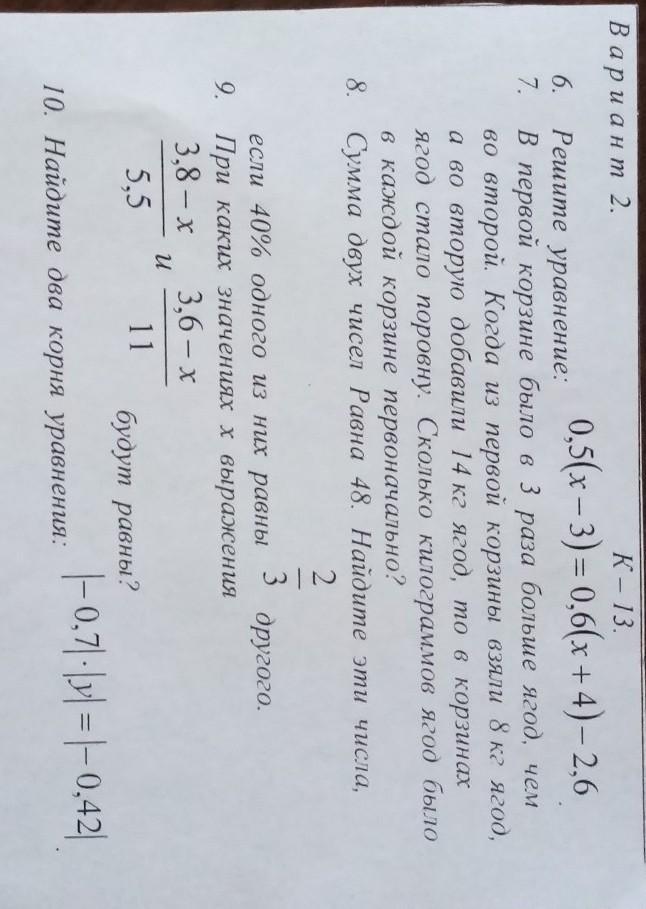 Вариант 2. К – 13.
6. Решите уравнение: 0,5(x – 3) = 0,6(x + 4) – 2,6.
7. В первой корзине было в 3 раза больше ягод, чем
во второй. Когда из первой корзины взяли 8 кг ягод,
а во вторую добавили 14 кг ягод, то в корзинах
ягод стало поровну. Сколько килограммов ягод было
в каждой корзине первоначально?
8. Сумма двух чисел Равна 48. Найдите эти числа,
если 40% одного из них равны 2/3 другого.
9. При каких значениях x выражения
(3,8 – x)/5,5 и (3,6 – x)/11 будут равны?
10. Найдите два корня уравнения: |–0,7|·|y| = |–0,42|.